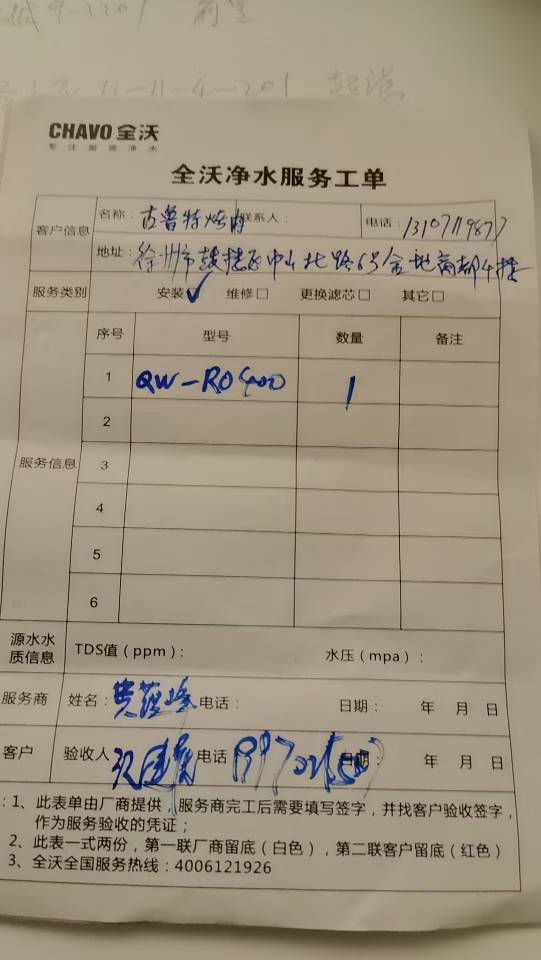 CHAVO 全沃
专注厨房净水
全沃净水服务工单
客户信息 名称：古鲁特烤肉 联系人： 电话：
地址：徐州市鼓楼区中山北路6号金地商都4楼
服务类别 安装✓ 维修□ 更换滤芯□ 其它□
服务信息
序号 型号 数量 备注
1 QW-RO400 1
2
3
4
5
6
源水水质信息 TDS值（ppm）： 水压（mpa）：
服务商 姓名： 电话： 日期： 年 月 日
客户 验收人 电话 日期： 年 月 日
：1、此表单由厂商提供，服务商完工后需要填写签字，并找客户验收签字，
作为服务验收的凭证；
2、此表一式两份，第一联厂商留底（白色），第二联客户留底（红色）
3、全沃全国服务热线：4006121926